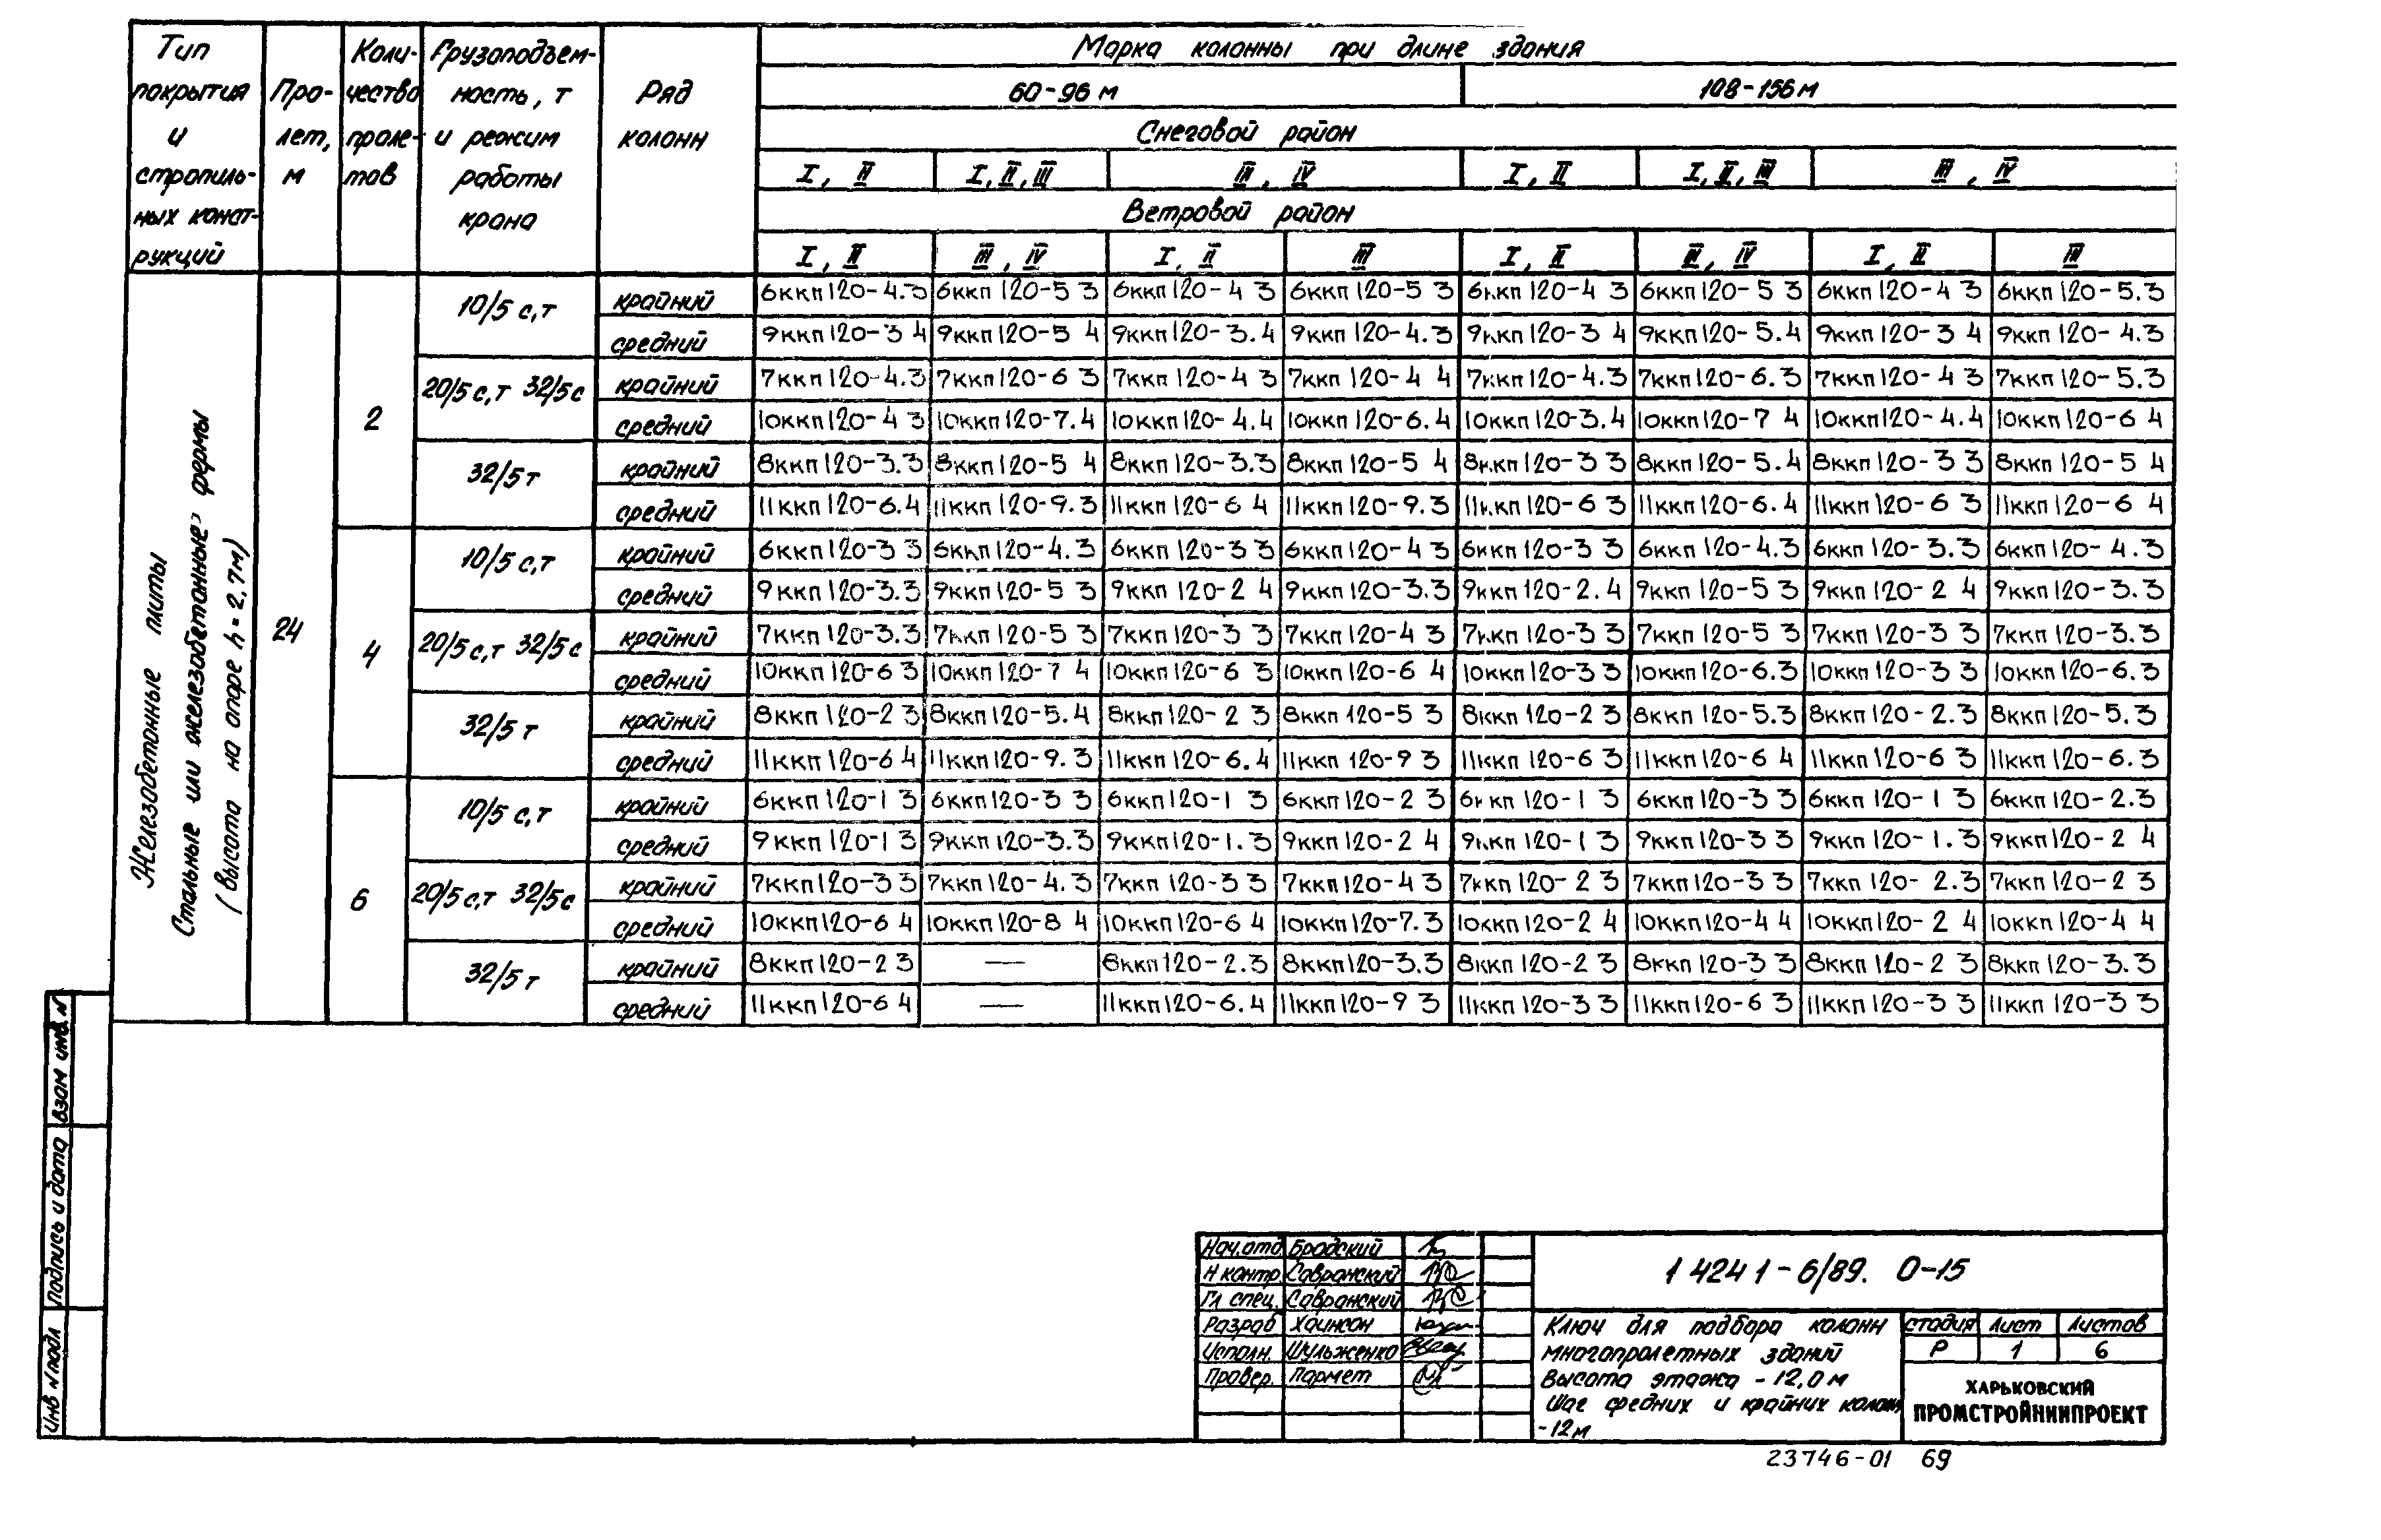 Тип покрытия и стропильных конструкций
Пролет, м
Количество пролетов
Грузоподъемность, т и режим работы крана
Ряд колонн
Марка колонны при длине здания
60-96 м 108-156 м
Снеговой район
I, II I, II, III III, IV I, II I, II, III III, IV
Ветровой район
I, II III, IV I, II III I, II III, IV I, II III
Железобетонные плиты
Стальные или железобетонные фермы
(высота на опоре h = 2,7м)
24
2
10/5 с,т крайний 6ккп120-4.3 6ккп120-5 3 6ккп120-4 3 6ккп120-5 3 6ккп120-4 3 6ккп120-5 3 6ккп120-4 3 6ккп120-5.3
средний 9ккп120-3 4 9ккп120-5 4 9ккп120-3.4 9ккп120-4.3 9ккп120-3 4 9ккп120-5.4 9ккп120-3 4 9ккп120-4.3
20/5 с,т 32/5 с крайний 7ккп120-4.3 7ккп120-6 3 7ккп120-4 3 7ккп120-4 4 7ккп120-4.3 7ккп120-6.3 7ккп120-4 3 7ккп120-5.3
средний 10ккп120-4 3 10ккп120-7.4 10ккп120-4.4 10ккп120-6.4 10ккп120-3.4 10ккп120-7 4 10ккп120-4.4 10ккп120-6 4
32/5 т крайний 8ккп120-3.3 8ккп120-5 4 8ккп120-3.3 8ккп120-5 4 8ккп120-3 3 8ккп120-5.4 8ккп120-3 3 8ккп120-5 4
средний 11ккп120-6.4 11ккп120-9.3 11ккп120-6 4 11ккп120-9.3 11ккп120-6 3 11ккп120-6.4 11ккп120-6 3 11ккп120-6 4
4
10/5 с,т крайний 6ккп120-3 3 6ккп120-4.3 6ккп120-3 3 6ккп120-4 3 6ккп120-3 3 6ккп120-4.3 6ккп120-3.3 6ккп120-4.3
средний 9ккп120-3.3 9ккп120-5 3 9ккп120-2 4 9ккп120-3.3 9ккп120-2.4 9ккп120-5 3 9ккп120-2 4 9ккп120-3.3
20/5 с,т 32/5 с крайний 7ккп120-3.3 7ккп120-5 3 7ккп120-3 3 7ккп120-4 3 7ккп120-3 3 7ккп120-5 3 7ккп120-3 3 7ккп120-3.3
средний 10ккп120-6 3 10ккп120-7 4 10ккп120-6 3 10ккп120-6 4 10ккп120-3 3 10ккп120-6.3 10ккп120-3 3 10ккп120-6.3
32/5 т крайний 8ккп120-2 3 8ккп120-5.4 8ккп120-2 3 8ккп120-5 3 8ккп120-2 3 8ккп120-5.3 8ккп120-2.3 8ккп120-5.3
средний 11ккп120-6 4 11ккп120-9.3 11ккп120-6.4 11ккп120-9 3 11ккп120-6 3 11ккп120-6 4 11ккп120-6 3 11ккп120-6.3
6
10/5 с,т крайний 6ккп120-1 3 6ккп120-3 3 6ккп120-1 3 6ккп120-2 3 6ккп120-1 3 6ккп120-3 3 6ккп120-1 3 6ккп120-2.3
средний 9ккп120-1 3 9ккп120-3.3 9ккп120-1.3 9ккп120-2 4 9ккп120-1 3 9ккп120-3 3 9ккп120-1.3 9ккп120-2 4
20/5 с,т 32/5 с крайний 7ккп120-3 3 7ккп120-4.3 7ккп120-3 3 7ккп120-4 3 7ккп120-2 3 7ккп120-3 3 7ккп120-2.3 7ккп120-2 3
средний 10ккп120-6 4 10ккп120-8 4 10ккп120-6 4 10ккп120-7.3 10ккп120-2 4 10ккп120-4 4 10ккп120-2 4 10ккп120-4 4
32/5 т крайний 8ккп120-2 3 — 8ккп120-2.3 8ккп120-3.3 8ккп120-2 3 8ккп120-3 3 8ккп120-2 3 8ккп120-3.3
средний 11ккп120-6 4 — 11ккп120-6.4 11ккп120-9 3 11ккп120-3 3 11ккп120-6 3 11ккп120-3 3 11ккп120-3 3
Взам инв. №
Подпись и дата
Инв № подл
Нач.отд Бродский
Н контр Савранский
Гл спец. Савранский
Разраб Хаинсон
Исполн. Шульженко
Провер. Пармет
1 424 1-6/89. 0-15
Ключ для подбора колонн
многопролетных зданий
Высота этажа - 12,0 м
Шаг средних и крайних колонн
-12м
стадия лист листов
Р 1 6
ХАРЬКОВСКИЙ
ПРОМСТРОЙНИИПРОЕКТ
23746-01 69